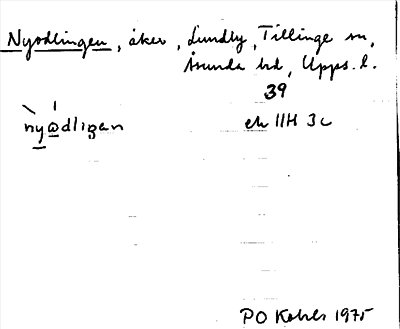 Nyodlingen, åker, Lundby, Tillinge sn,
Åsunda hd, Upps. l.
39
nyωdligan
ek 11H 3c
PO 1975